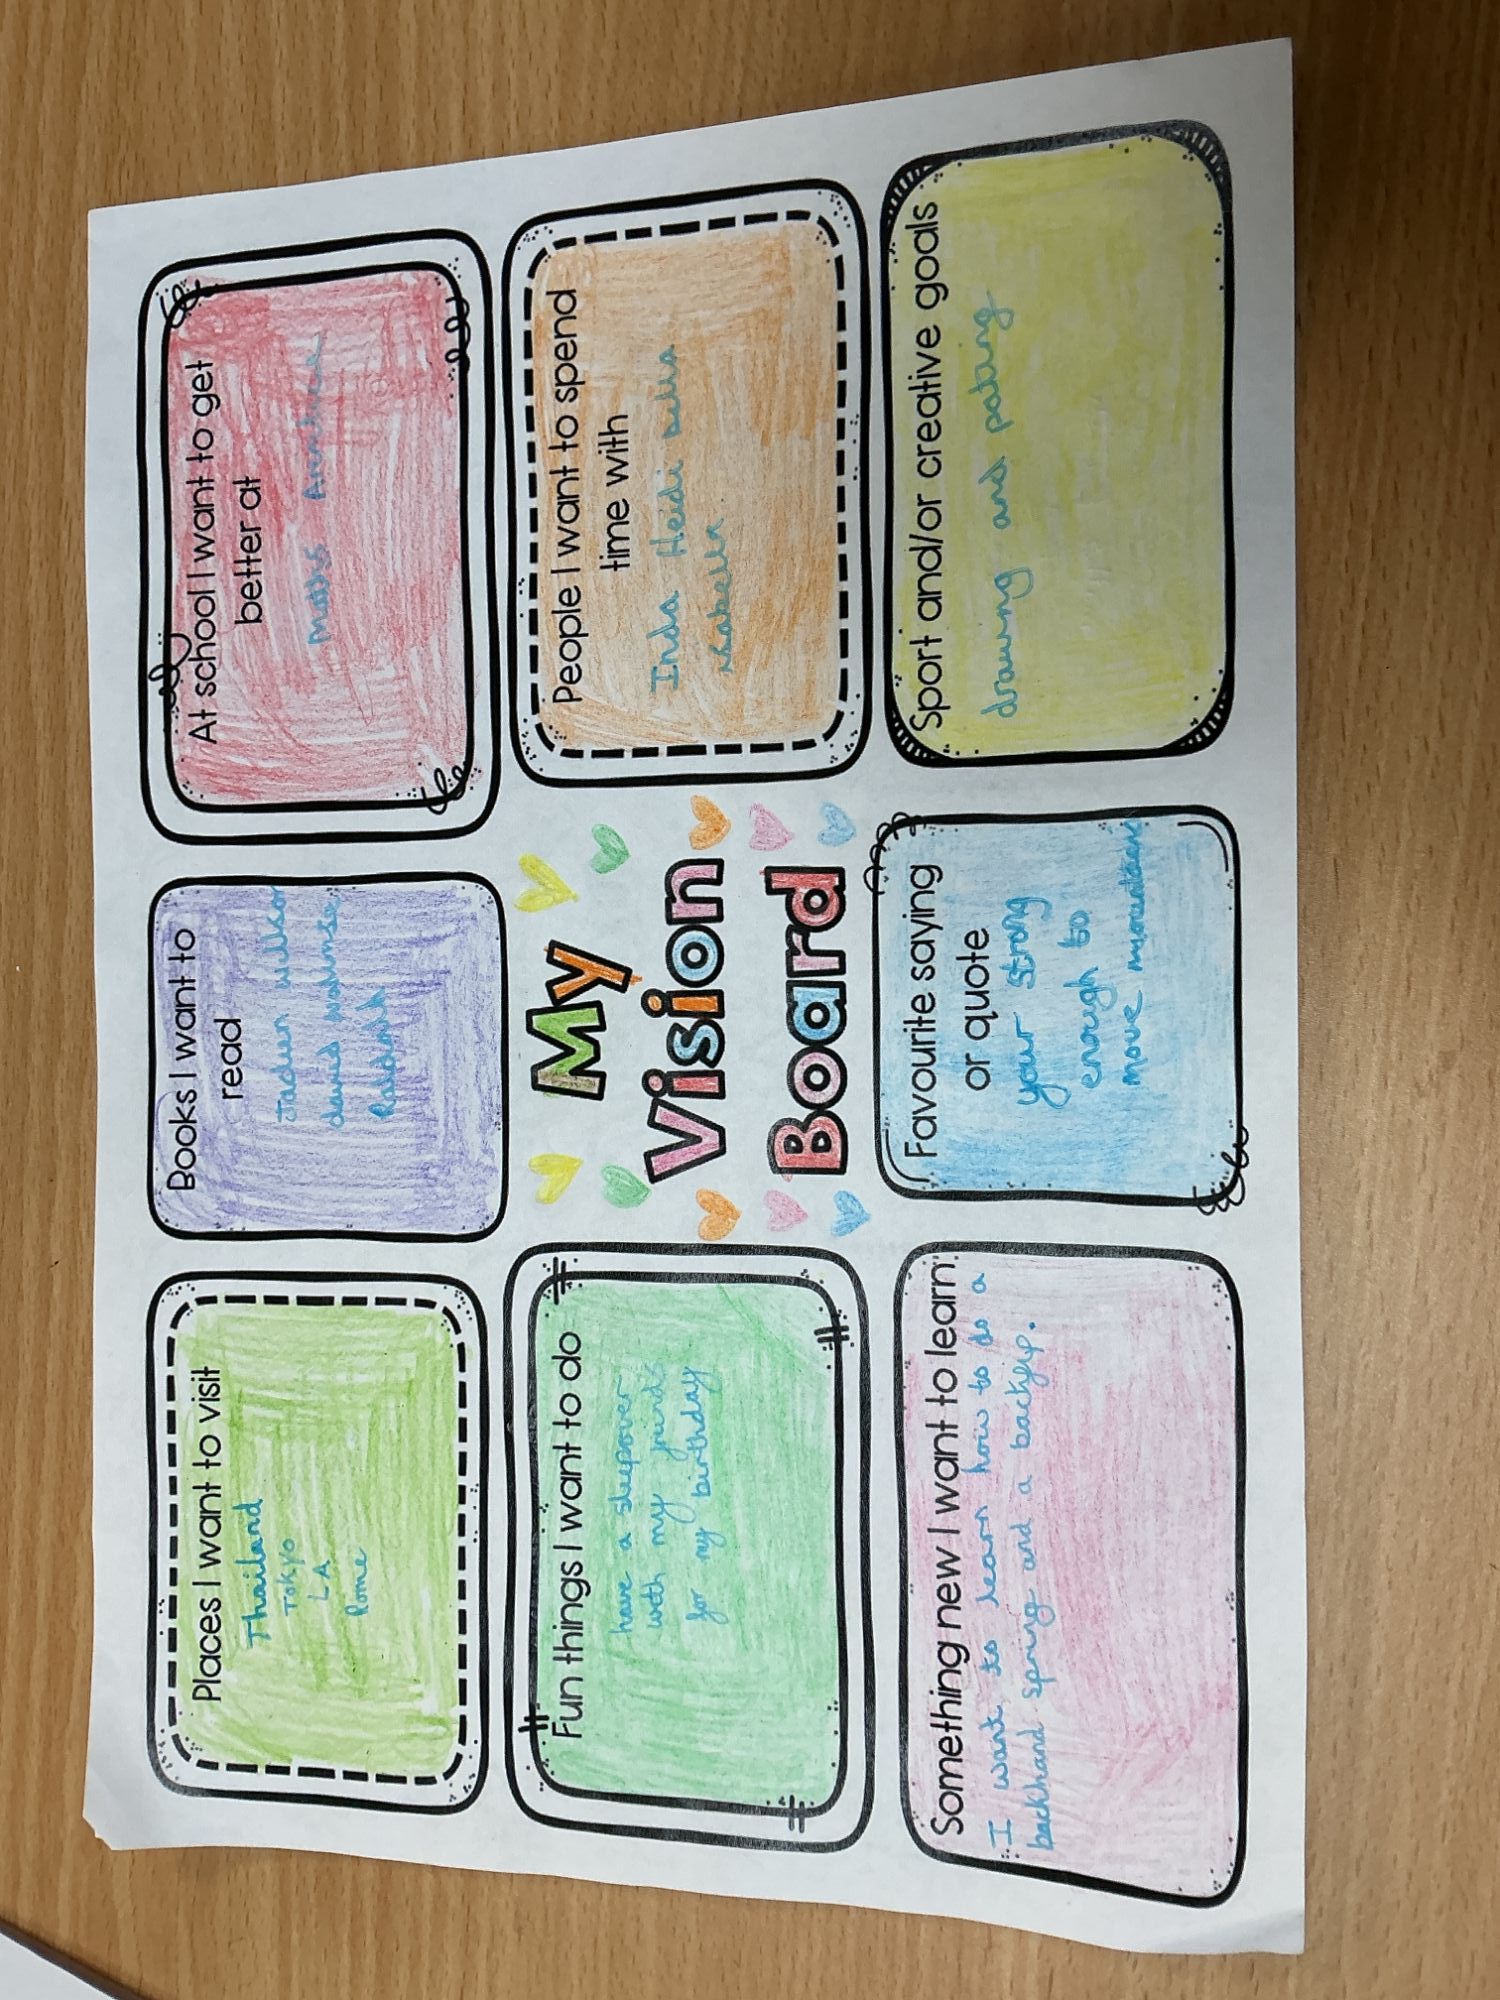 Places I want to visit
Thailand
Tokyo
LA
Rome
Books I want to
read
david
At school I want to get
better at
maths
Fun things I want to do
have a sleepover
with my friends
for my birthday
My
Vision
Board
People I want to spend
time with
Inda Heidi
Something new I want to learn
I want to learn how to do a
backhand spring and a backflip.
Favourite saying
or quote
your strong
enough to
move mountains
Sport and/or creative goals
drawing and